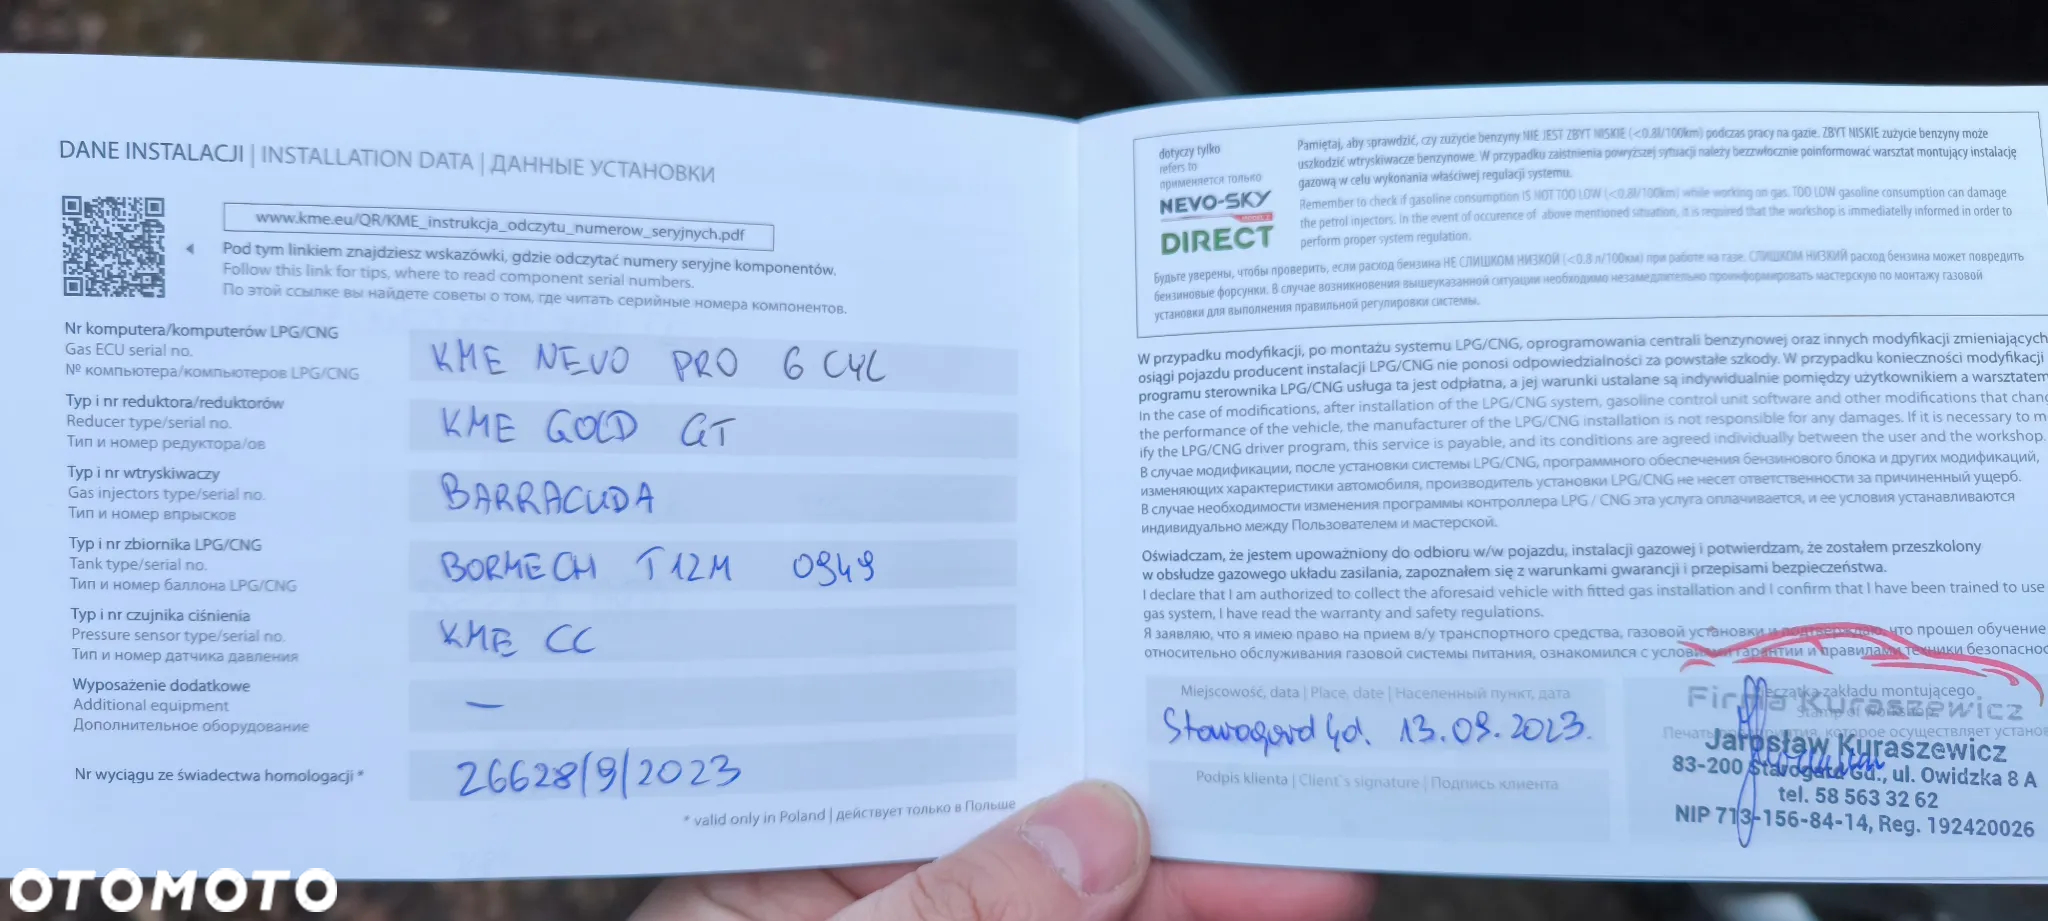 DANE INSTALACJI | INSTALLATION DATA | ДАННЫЕ УСТАНОВКИ
www.kme.eu/QR/KME_instrukcja_odczytu_numerow_seryjnych.pdf
Pod tym linkiem znajdziesz wskazówki, gdzie odczytać numery seryjne komponentów.
Follow this link for tips, where to read component serial numbers.
По этой ссылке вы найдете советы о том, где читать серийные номера компонентов.
Nr komputera/komputerów LPG/CNG
Gas ECU serial no.
№ компьютера/компьютеров LPG/CNG
KME NEVO PRO 6 CYL
Typ i nr reduktora/reduktorów
Reducer type/serial no.
Тип и номер редуктора/ов
KME GOLD GT
Typ i nr wtryskiwaczy
Gas injectors type/serial no.
Тип и номер впрысков
BARRACUDA
Typ i nr zbiornika LPG/CNG
Tank type/serial no.
Тип и номер баллона LPG/CNG
BORMECH T12M 0949
Typ i nr czujnika ciśnienia
Pressure sensor type/serial no.
Тип и номер датчика давления
KME CC
Wyposażenie dodatkowe
Additional equipment
Дополнительное оборудование
—
Nr wyciągu ze świadectwa homologacji *
26628/9/2023
* valid only in Poland | действует только в Польше
dotyczy tylko
refers to
применяется только
NEVO-SKY
DIRECT
Pamiętaj, aby sprawdzić, czy zużycie benzyny NIE JEST ZBYT NISKIE (<0.8l/100km) podczas pracy na gazie. ZBYT NISKIE zużycie benzyny może
uszkodzić wtryskiwacze benzynowe. W przypadku zaistnienia powyższej sytuacji należy bezzwłocznie poinformować warsztat montujący instalację
gazową w celu wykonania właściwej regulacji systemu.
Remember to check if gasoline consumption IS NOT TOO LOW (<0.8l/100km) while working on gas. TOO LOW gasoline consumption can damage
the petrol injectors. In the event of occurence of above mentioned situation, it is required that the workshop is immediatelly informed in order to
perform proper system regulation.
Будьте уверены, чтобы проверить, если расход бензина НЕ СЛИШКОМ НИЗКОЙ (<0.8 л/100км) при работе на газе. СЛИШКОМ НИЗКИЙ расход бензина может повредить
бензиновые форсунки. В случае возникновения вышеуказанной ситуации необходимо незамедлительно проинформировать мастерскую по монтажу газовой
установки для выполнения правильной регулировки системы.
W przypadku modyfikacji, po montażu systemu LPG/CNG, oprogramowania centrali benzynowej oraz innych modyfikacji zmieniających
osiągi pojazdu producent instalacji LPG/CNG nie ponosi odpowiedzialności za powstałe szkody. W przypadku konieczności modyfikacji
programu sterownika LPG/CNG usługa ta jest odpłatna, a jej warunki ustalane są indywidualnie pomiędzy użytkownikiem a warsztatem
In the case of modifications, after installation of the LPG/CNG system, gasoline control unit software and other modifications that chan
the performance of the vehicle, the manufacturer of the LPG/CNG installation is not responsible for any damages. If it is necessary to m
ify the LPG/CNG driver program, this service is payable, and its conditions are agreed individually between the user and the workshop.
В случае модификации, после установки системы LPG/CNG, программного обеспечения бензинового блока и других модификаций,
изменяющих характеристики автомобиля, производитель установки LPG/CNG не несет ответственности за причиненный ущерб.
В случае необходимости изменения программы контроллера LPG / CNG эта услуга оплачивается, и ее условия устанавливаются
индивидуально между Пользователем и мастерской.
Oświadczam, że jestem upoważniony do odbioru w/w pojazdu, instalacji gazowej i potwierdzam, że zostałem przeszkolony
w obsłudze gazowego układu zasilania, zapoznałem się z warunkami gwarancji i przepisami bezpieczeństwa.
I declare that I am authorized to collect the aforesaid vehicle with fitted gas installation and I confirm that I have been trained to use
gas system, I have read the warranty and safety regulations.
Я заявляю, что я имею право на прием в/у транспортного средства, газовой установки и подтверждаю, что прошел обучение
относительно обслуживания газовой системы питания, ознакомился с условиями гарантии и правилами техники безопасно
Miejscowość, data | Place, date | Населенный пункт, дата
Starogard Gd. 13.09.2023.
Podpis klienta | Client`s signature | Подпись клиента
Pieczątka zakładu montującego
Firma Kuraszewicz
Jarosław Kuraszewicz
83-200 Starogard Gd., ul. Owidzka 8 A
tel. 58 563 32 62
NIP 713-156-84-14, Reg. 192420026
OTOMOTO